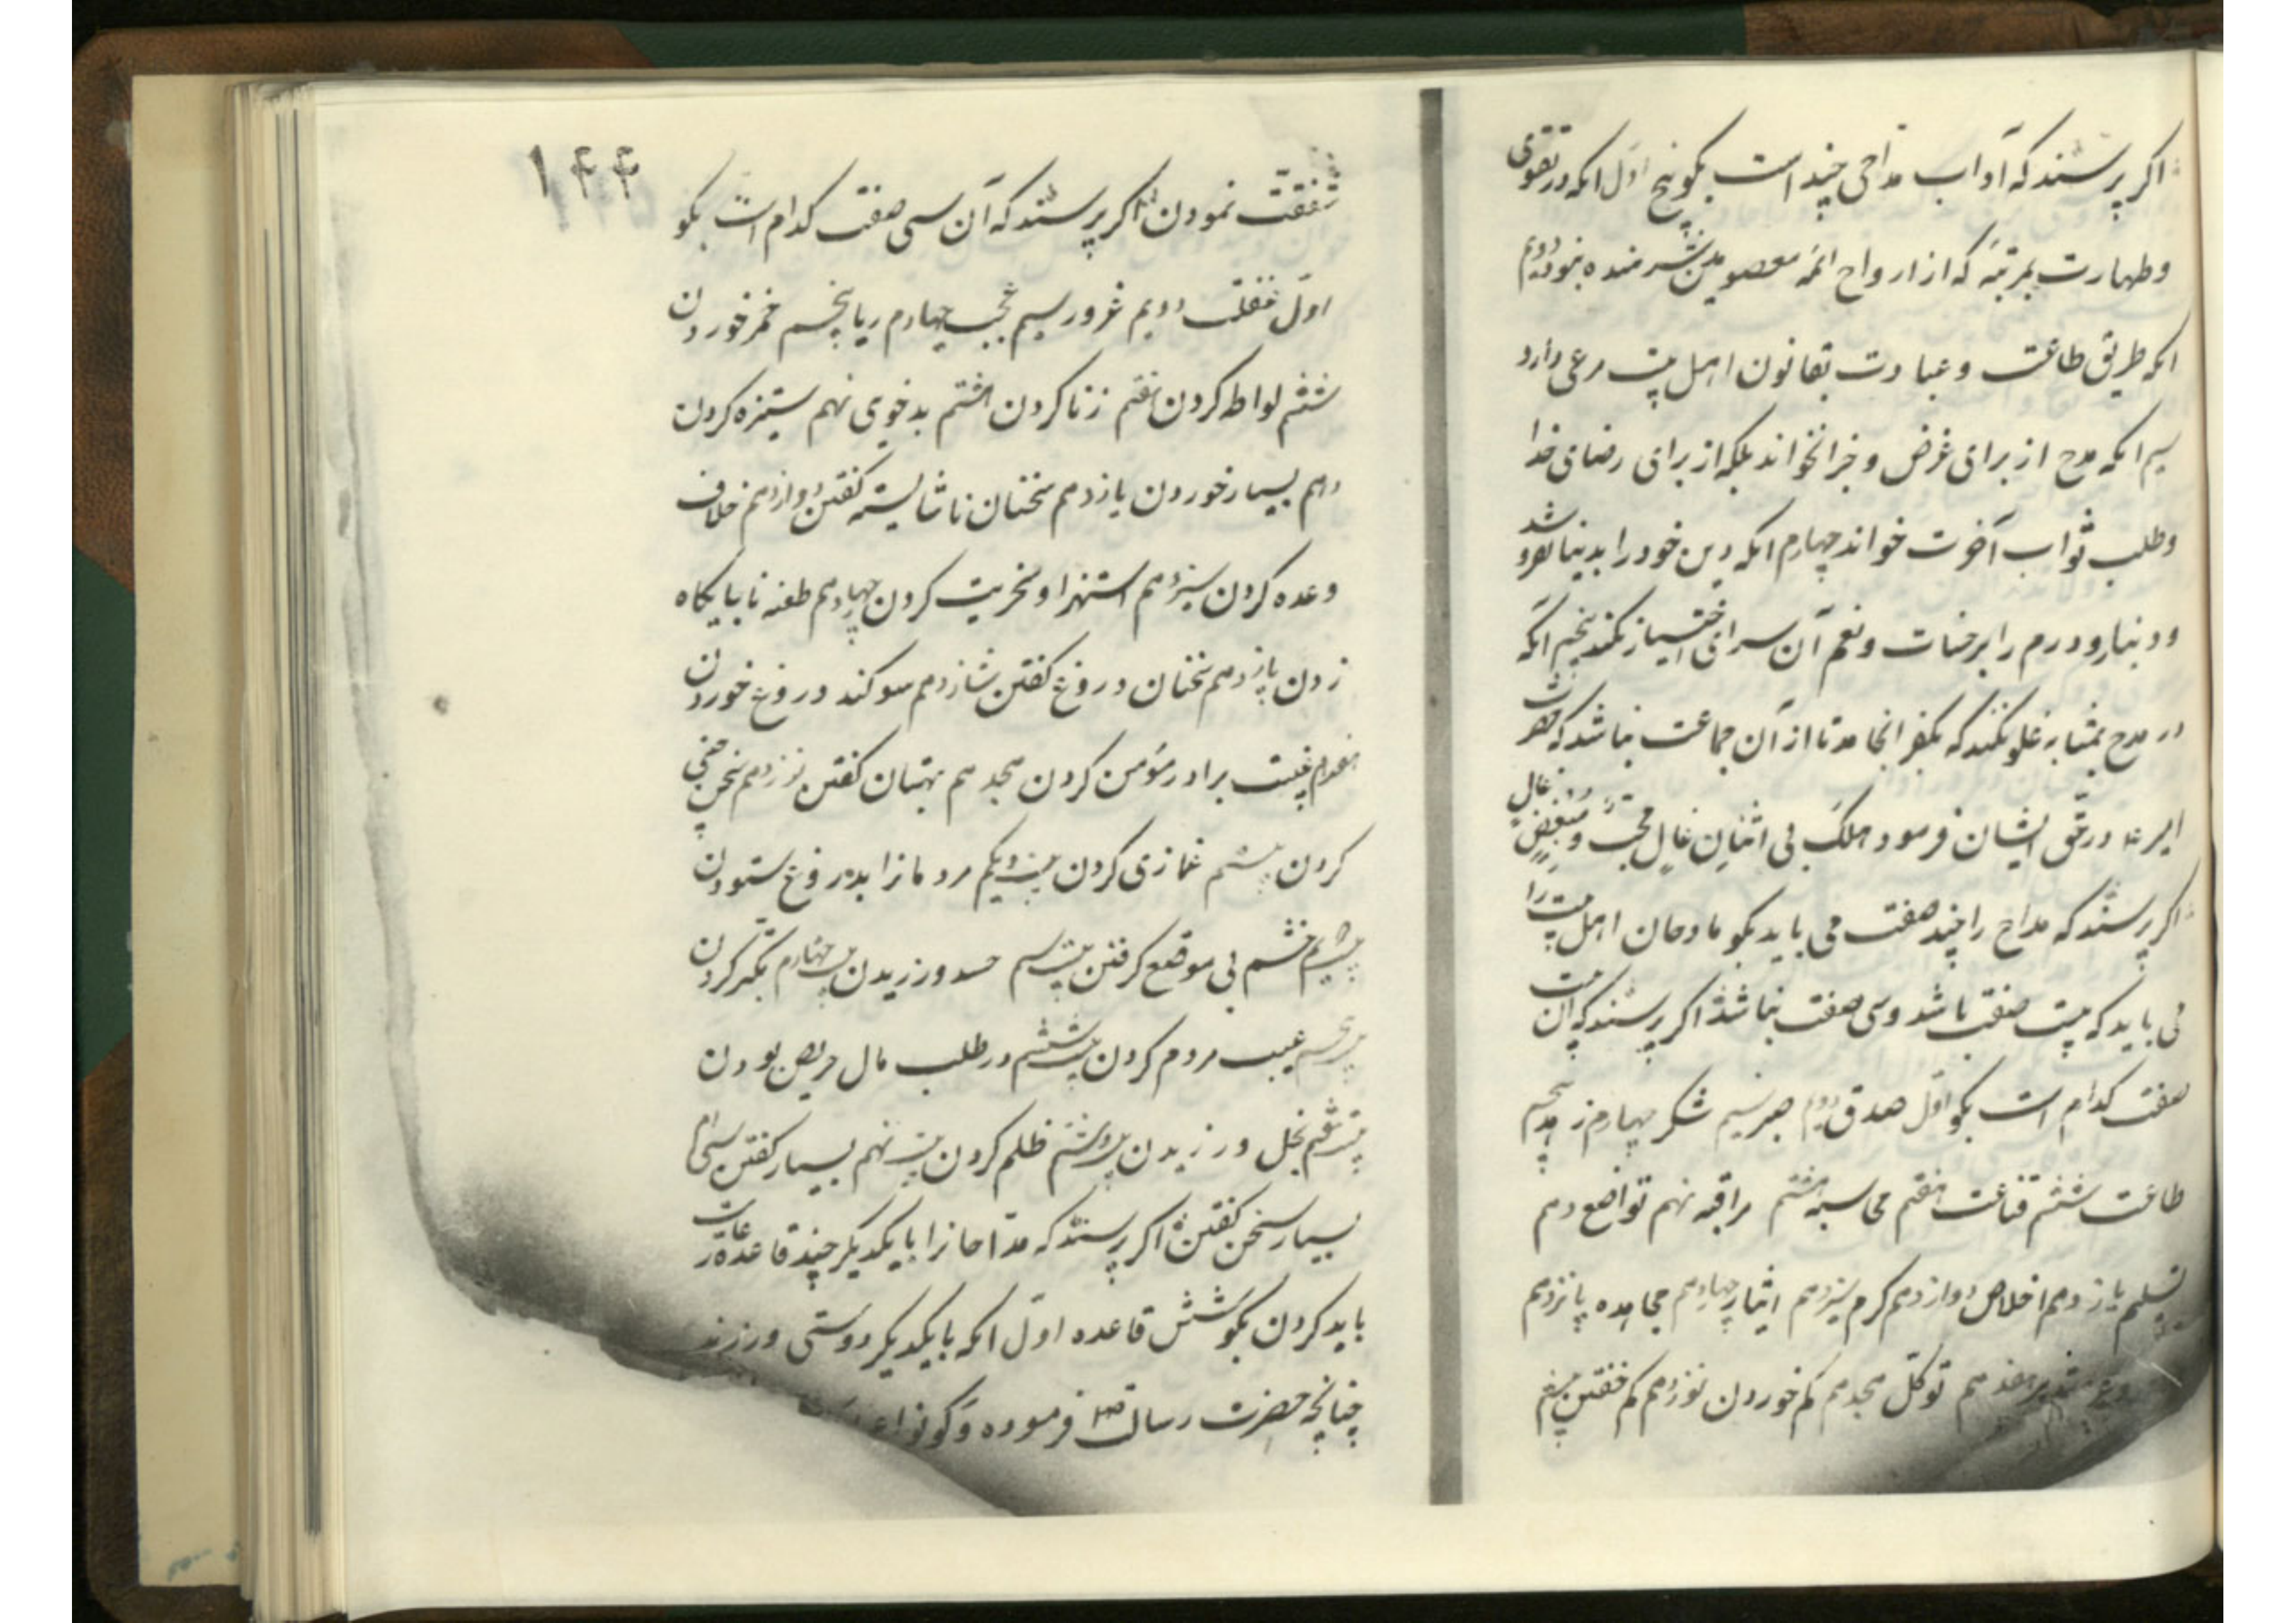 اکر پرسند که آداب مداحی چند است بکو پنج اول انکه در تقوی
وطهارت بمرتبۀ که از ارواح ائمه معصومین شرمنده نبود دویم
انکه طریق طاعت و عبادت بقانون اهل بیت مرعی دارد
سیم انکه مدح از برای غرض و جر نخواند بلکه از برای رضای خدا
وطلب ثواب آخرت خواند چهارم انکه دین خود را بدنیا نفروشد
ودینار ودرم را بر حسنات ونعم آن سرای اختیار نکند پنجم انکه
در مدح بمثابه غلو نکند که بکفر انجامد تا از آن جماعت نباشد که حضرت
امیر ع در حق ایشان فرمود هلک فی اثنان غال محب و مبغض غال
اکر پرسند که مداح را چند صفت می باید بکو مادحان اهل بیت را
می باید که بیست صفت باشد وسی صفت نباشد اکر پرسند که آن بیست
صفت کدام است بکو اول صدق دویم صبر سیم شکر چهارم زهد پنجم
طاعت ششم قناعت هفتم محاسبه هشتم مراقبه نهم تواضع دهم
تسلیم یازدهم اخلاص دوازدهم کرم سیزدهم ایثار چهاردهم مجاهده پانزدهم
هفدهم توکل هجدهم کم خوردن نوزدهم کم خفتن بیستم
۱۴۴
شفقت نمودن اکر پرسند که آن سی صفت کدام است بکو
اول غفلت دویم غرور سیم عجب چهارم ریا پنجم خمر خوردن
ششم لواطه کردن هفتم زنا کردن هشتم بدخوی نهم ستیزه کردن
دهم بسیار خوردن یازدهم سخنان ناشایسته کفتن دوازدهم خلاف
وعده کردن سیزدهم استهزا وسخریت کردن چهاردهم طعنه نابایکاه
زدن پانزدهم سخنان دروغ کفتن شازدهم سوکند دروغ خوردن
هفدهم غیبت برادر مؤمن کردن هجدهم بهتان کفتن نوزدهم سخن چینی
کردن بیستم غمازی کردن بیست ویکم مردمانرا بدروغ ستودن
بیست دویم خشم بی موقع کرفتن بیست سیم حسد ورزیدن بیست چهارم تکبر کردن
بیست پنجم عیب مردم کردن بیست ششم در طلب مال حریص بودن
بیست هفتم بخل ورزیدن بیست وهشتم ظلم کردن بیست نهم بسیار کفتن سی ام
بسیار سخن کفتن اکر پرسند که مداحانرا بایکدیکر چند قاعده رعایت
باید کردن بکو شش قاعده اول انکه بایکدیکر دوستی ورزند
چنانچه حضرت رسالت صلعم فرموده وکونوا